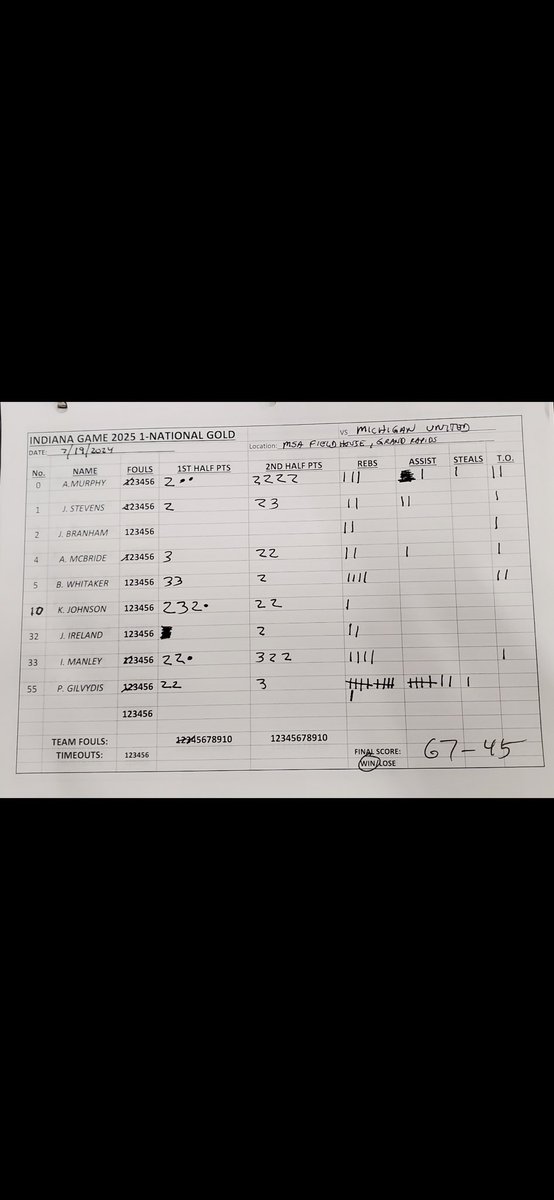 INDIANA GAME 2025 1-NATIONAL GOLD VS MICHIGAN UNITED
DATE: 7/19/2024 Location: MSA FIELDHOUSE, GRAND RAPIDS
No. NAME FOULS 1ST HALF PTS 2ND HALF PTS REBS ASSIST STEALS T.O.
0 A.MURPHY 123456 2 •• 2222 ||| | | ||
1 J. STEVENS 123456 2 23 || || |
2 J. BRANHAM 123456 || |
4 A. MCBRIDE 123456 3 22 || | |
5 B. WHITAKER 123456 33 2 |||| ||
10 K. JOHNSON 123456 232• 22 |
32 J. IRELAND 123456 2 ||
33 I. MANLEY 123456 22• 322 |||| |
55 P. GILVYDIS 123456 22 3 |
123456
TEAM FOULS: 12345678910 12345678910
TIMEOUTS: 123456 FINAL SCORE: 67-45
WIN/LOSE